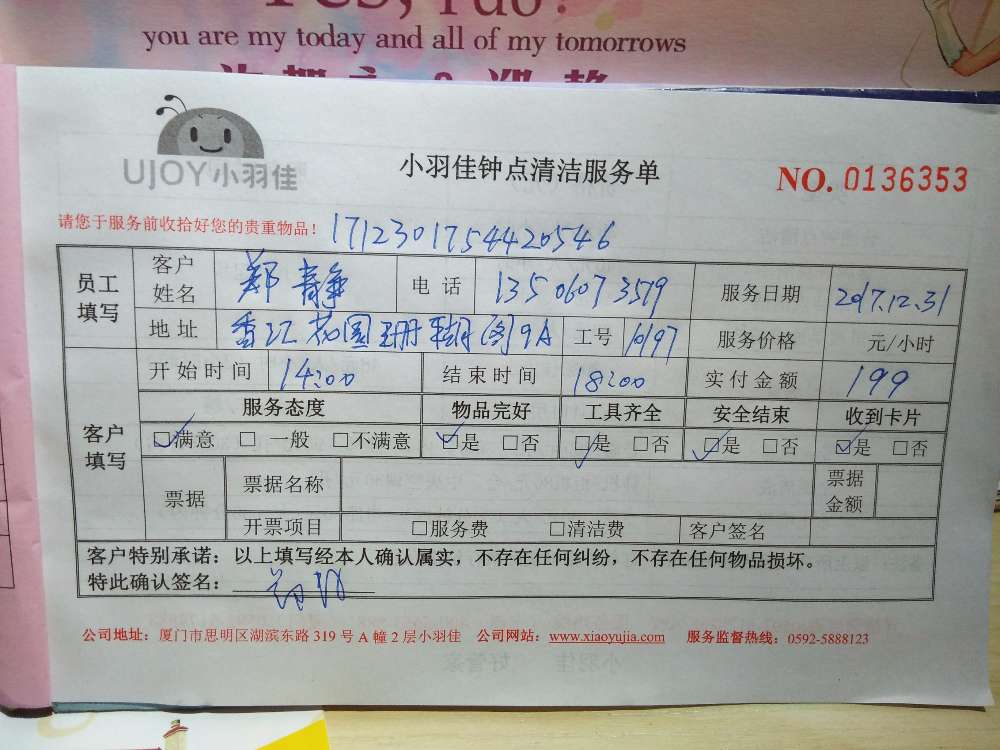 you are my today and all of my tomorrows
UJOY小羽佳
小羽佳钟点清洁服务单
NO. 0136353
请您于服务前收拾好您的贵重物品!
1712301754420546
员工填写 客户姓名 郑静 电话 13506073519 服务日期 2017.12.31
地址 香江花园珊瑚阁9A 工号 10197 服务价格 元/小时
客户填写 开始时间 14:00 结束时间 18:00 实付金额 199
服务态度 物品完好 工具齐全 安全结束 收到卡片
☑满意 □一般 □不满意 ☑是 □否 ☑是 □否 ☑是 □否 ☑是 □否
票据 票据名称 票据金额
开票项目 □服务费 □清洁费 客户签名
客户特别承诺:以上填写经本人确认属实,不存在任何纠纷,不存在任何物品损坏。
特此确认签名:
公司地址:厦门市思明区湖滨东路 319 号 A 幢 2 层小羽佳 公司网站:www.xiaoyujia.com 服务监督热线:0592-5888123